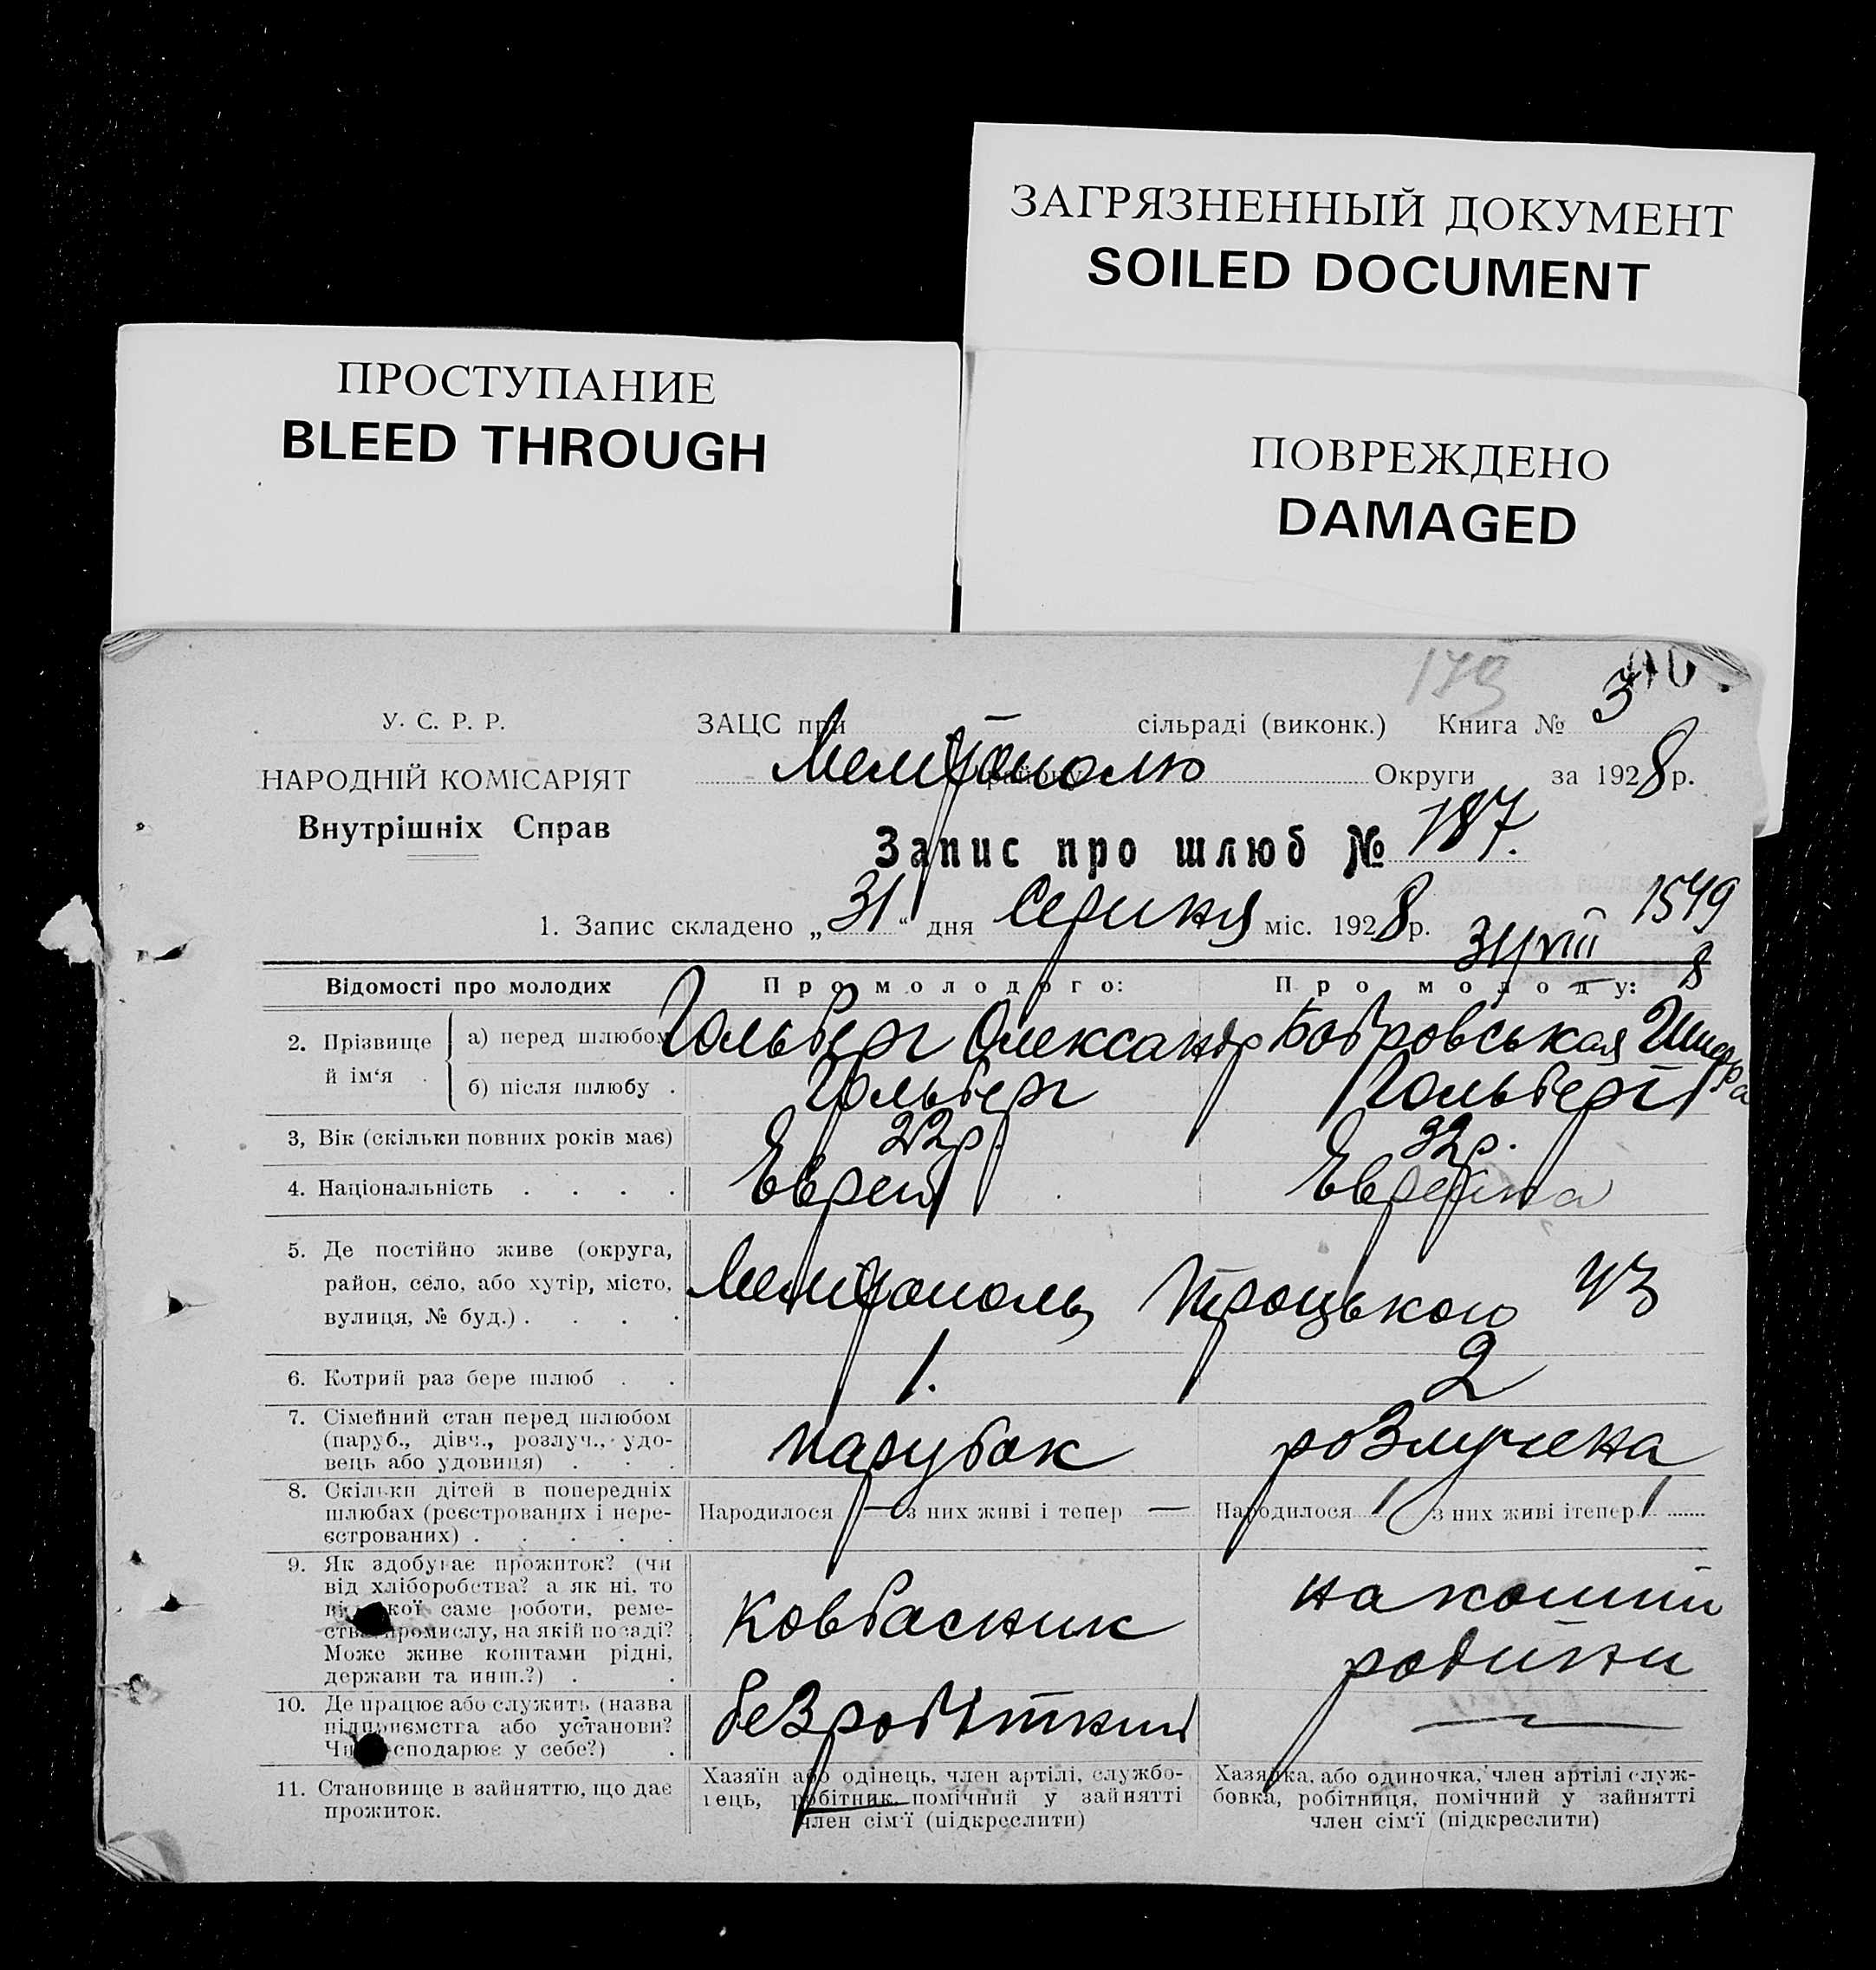 ЗАГРЯЗНЕННЫЙ ДОКУМЕНТ
SOILED DOCUMENT
ПРОСТУПАНИЕ
BLEED THROUGH
ПОВРЕЖДЕНО
DAMAGED
У. С. Р. Р.
НАРОДНІЙ КОМІСАРІЯТ
Внутрішніх Справ
ЗАЦС при — сільраді (виконк.) Книга № 3
Мелітополю району Округи за 1928 р.
Запис про шлюб № 187.
1. Запис складено „31“ дня Серпня міс. 1928 р.
1549
31/VIII 8
Відомості про молодих Про молодого: Про молоду:
2. Прізвище й ім‘я
а) перед шлюбом Гольберг Олександр Бобровськая
б) після шлюбу . Гольберг Гольберг
3, Вік (скільки повних років має) 22р. 32р.
4. Національність . . . . Еврей Еврейка
5. Де постійно живе (округа,
район, село, або хутір, місто,
вулиця, № буд.) . . . .
Мелітополь Троцького 43
6. Котрий раз бере шлюб . . 1. 2
7. Сімейний стан перед шлюбом
(паруб., дівч., розлуч., удо-
вець або удовиця) . . .
парубок розлучена
8. Скільки дітей в попередніх
шлюбах (реєстрованих і нере-
єстрованих) . . . . .
Народилося — з них живі і тепер — Народилося 1 з них живі ітепер 1
9. Як здобуває прожиток? (чи
від хліборобства? а як ні, то
кої саме роботи, реме-
промислу, на якій посаді?
Може живе коштами рідні,
держави та инш.?) . .
Ковбасник
на кошти
родини
10. Де працює або служить (назва
підприємства або установи?
Чи сподарює у себе?) .
безробітний —
11. Становище в зайняттю, що дає
прожиток.
Хазяїн або одінець, член артілі, службо-
вець, робітник, помічний у зайнятті
член сім‘ї (підкреслити)
Хазяйка, або одиночка, член артілі служ-
бовка, робітниця, помічний у зайнятті
член сім‘ї (підкреслити)